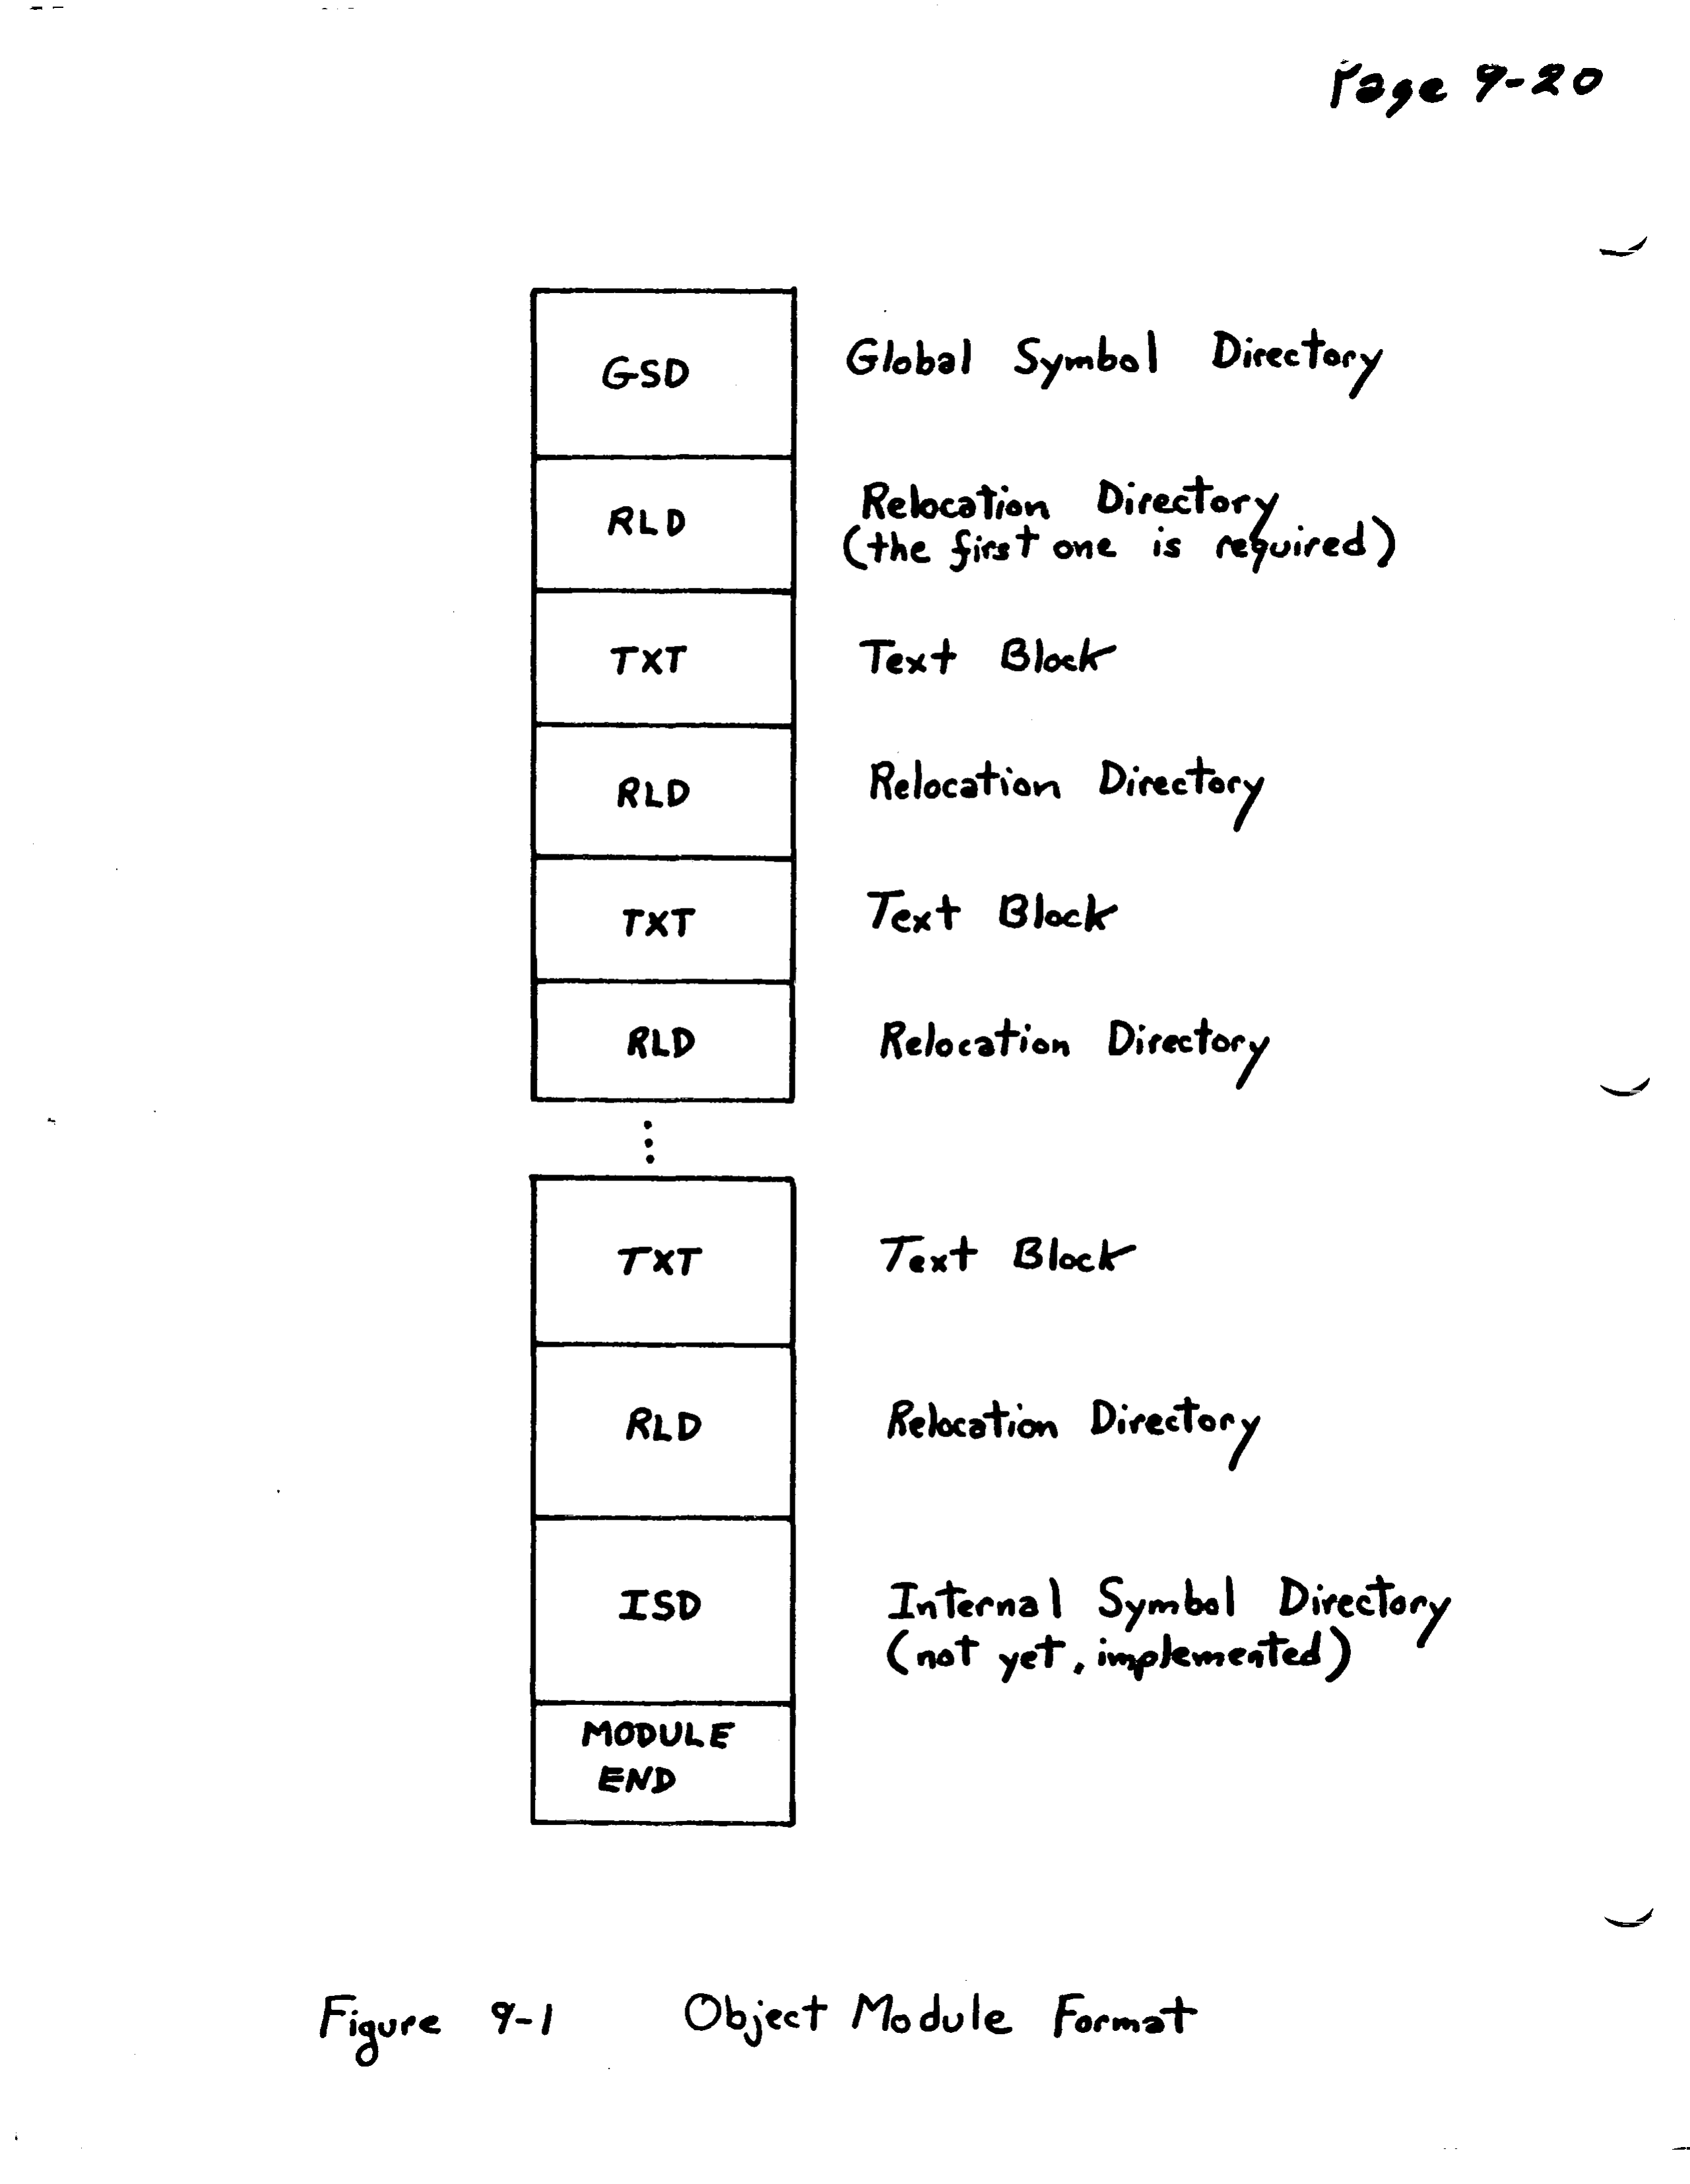 Page 9-20
GSD Global Symbol Directory
RLD Relocation Directory
(the first one is required)
TXT Text Block
RLD Relocation Directory
TXT Text Block
RLD Relocation Directory
⋮
TXT Text Block
RLD Relocation Directory
ISD Internal Symbol Directory
(not yet, implemented)
MODULE
END
Figure 9-1 Object Module Format